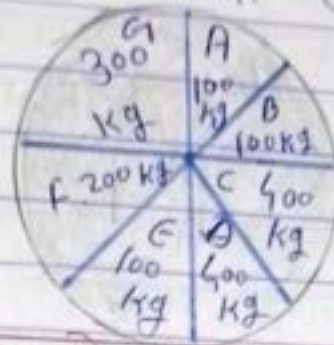 G
300
kg
A
100
kg
B
100 kg
C
400
kg
D
400
kg
E
100
kg
F 200 kg